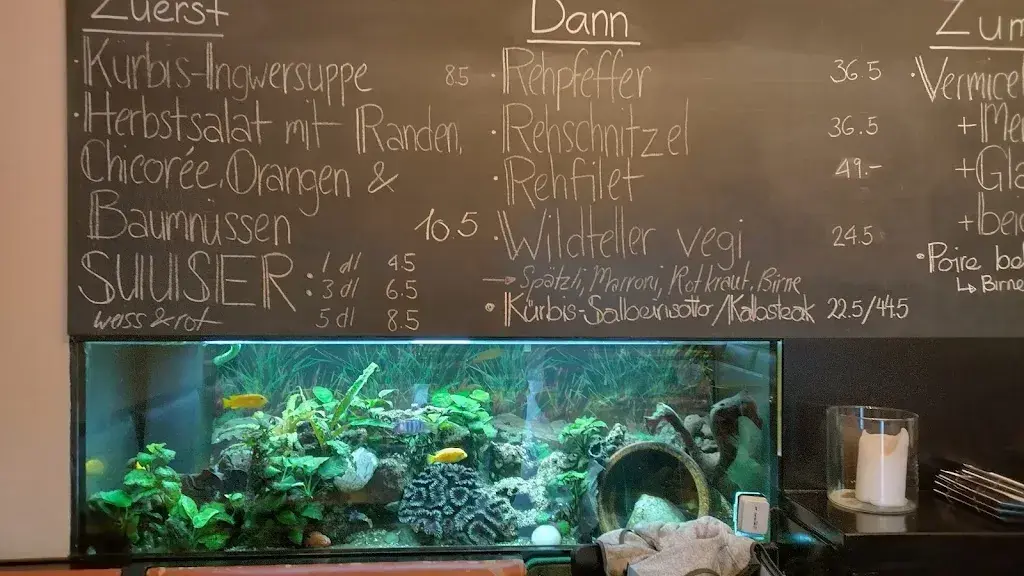 Zuerst
· Kürbis-Ingwersuppe 8.5
· Herbstsalat mit Randen,
Chicorée, Orangen &
Baumnüssen 10.5
SUUSER : 1 dl 4.5
3 dl 6.5
weiss & rot 5 dl 8.5
Dann
· Rehpfeffer 36.5
· Rehschnitzel 36.5
· Rehfilet 49.-
· Wildteller vegi 24.5
→ Spätzli, Marroni, Rotkraut, Birne
· Kürbis-Salbeirisotto/Kalbsteak 22.5/44.5
Zum
· Vermicel
+ Me
+ Gla
+ bei
· Poire be
↳ Birne